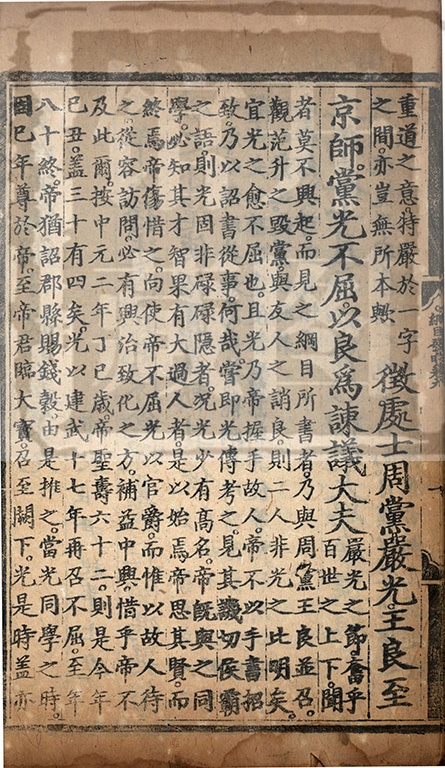 重道之意特嚴於一字
之間亦豈無所本歟
徵處士周黨嚴光王良至
京師黨光不屈以良爲諫議大夫
嚴光之節奮乎
百世之上下聞
者莫不興起而見之綱目所書者乃與周黨王良並召
觀范升之毀黨與友人之誚良則二人非光之比明矣
宜光之愈不屈也且光乃帝握手故人帝不以手書招
致乃以詔書從事何哉嘗即光傳考之見其譏切侯霸
之語則光固非碌碌隱者况光少有高名帝旣與之同
學必知其才智果有大過人者是以始焉帝思其賢而
終焉帝傷惜之向使帝不屈光以官爵而惟以故人待
之從容訪問必有興治致化之方補益中興惜乎帝不
及此爾按中元二年丁巳歲帝聖壽六十二則是今年
己丑蓋三十有四矣光以建武十七年再召不屈至年
八十終帝猶詔郡縣賜錢穀由是推之當光同學之時
固已年尊於帝至帝君臨大寶召至闕下光是時蓋亦